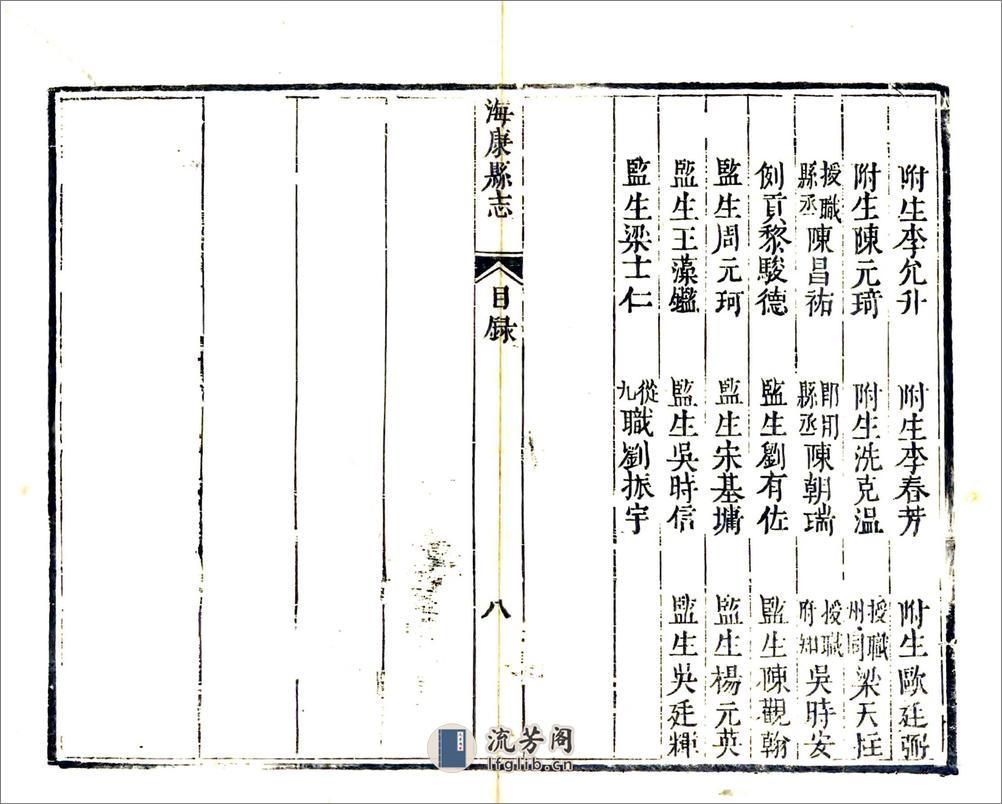 附生李允升　附生李春芳　附生歐廷弼
附生陳元琦　附生洗克温　授職州同梁天柱
授職縣丞陳昌祐　即用縣丞陳朝瑞　授職府知吳時安
例貢黎駿德　監生劉有佐　監生陳觀翰
監生周元珂　監生宋基墉　監生楊元英
監生王藻鑑　監生吳時信　監生吳廷輝
監生梁士仁　從九職劉振宇
海康縣志　目録　八
流芳阁
lfglib.cn